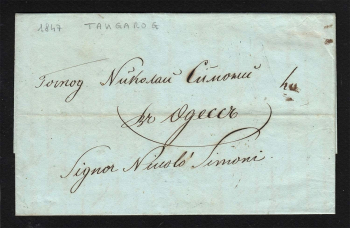 1847 TANGAROG
Господ Николай Симоний
въ Одессъ
Signor Nicolò Simoni.